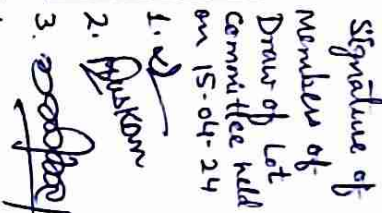 Signature of
Members of
Draw of Lot
Committee held
on 15-04-24
1.
2. Muskan
3.